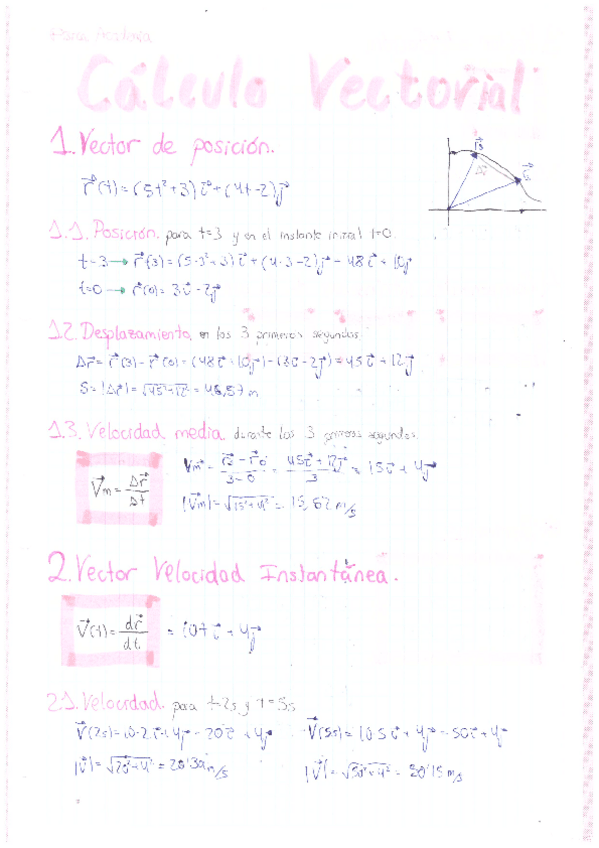 Cálculo Vectorial
1. Vector de posición.
r⃗(t)=(5t²+3)i⃗+(4t-2)j⃗
r⃗3
Δr⃗
1.1. Posición, para t=3 y en el instante inicial t=0.
t=3 → r⃗(3)=(5·3²+3)i⃗+(4·3-2)j⃗ = 48i⃗+10j⃗
t=0 → r⃗(0)= 3i⃗-2j⃗
1.2. Desplazamiento, en los 3 primeros segundos
Δr⃗= r⃗(3)-r⃗(0)=(48i⃗+10j⃗)-(3i⃗-2j⃗)=45i⃗+12j⃗
S=|Δr⃗|=√45²+12²=46,57 m
1.3. Velocidad media, durante los 3 primeros segundos.
V⃗m= Δr⃗/Δt
V⃗m= r⃗3-r⃗0/3-0 = 45i⃗+12j⃗/3 = 15i⃗+4j⃗
|V⃗m|=√15²+4²= 15,52 m/s
2. Vector Velocidad Instantánea.
V⃗(t)= dr⃗/dt = 10t i⃗+4j⃗
2.1. Velocidad. para t=2s y t=5s
V⃗(2s)=10·2i⃗+4j⃗=20i⃗+4j⃗ V⃗(5s)=10·5i⃗+4j⃗=50i⃗+4j⃗
|V⃗|=√20²+4²=20'39m/s |V⃗|=√50²+4²=50'15m/s